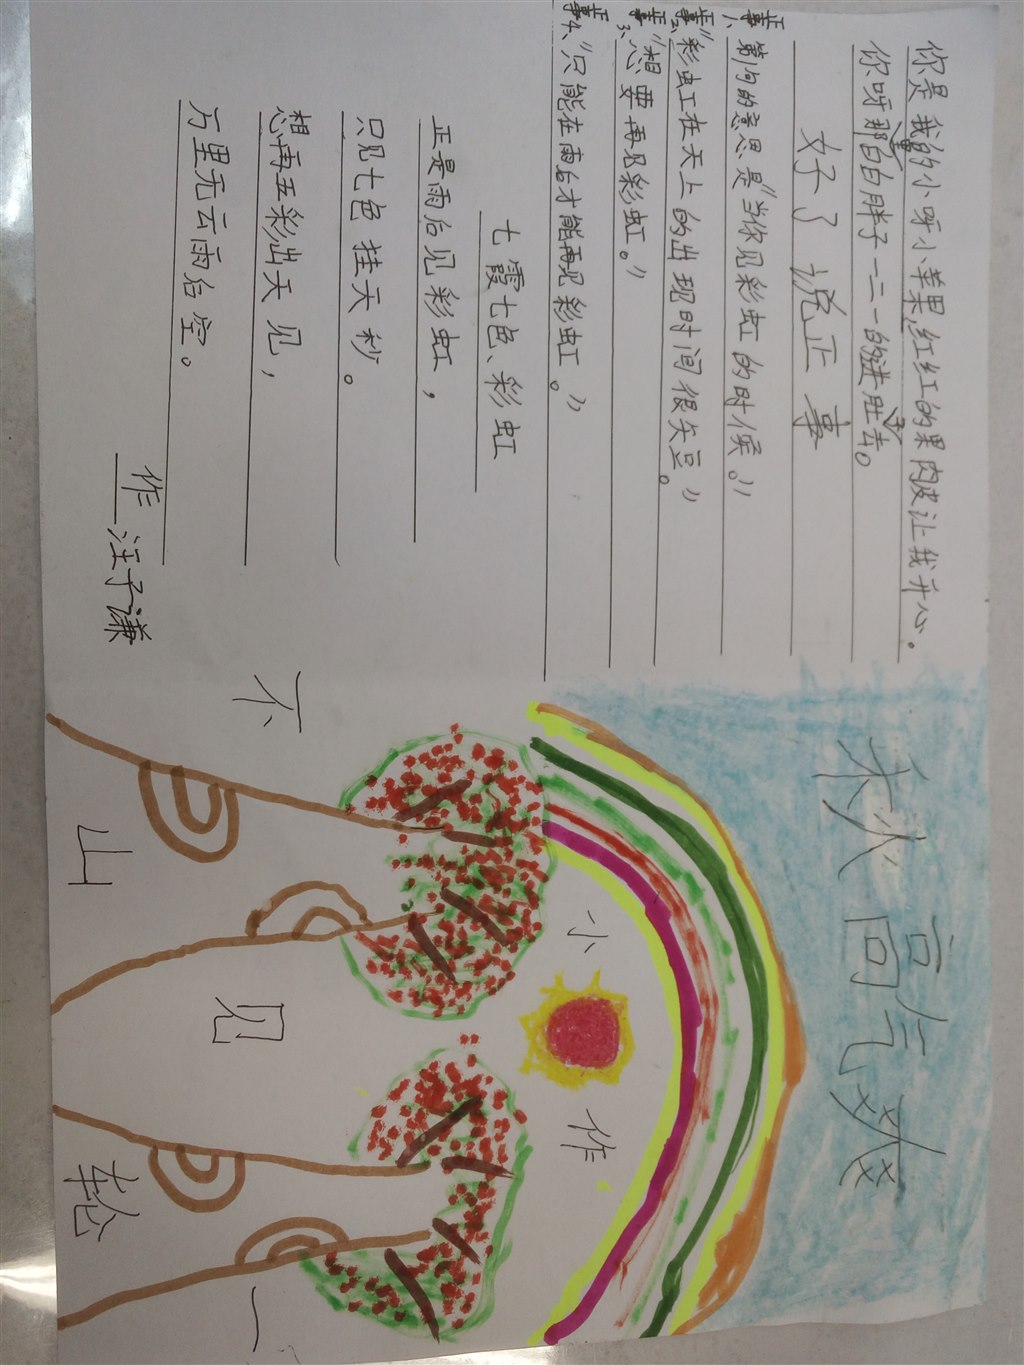 你是我的小呀小苹果,红红的果肉皮让我开心。
你呀那白白胖子一二一的进肚去。
好了说正事
第1句的意思是“当你见彩虹的时候。”
“彩虹在天上的出现时间很短。”
“想要再见彩虹。”
“只能在雨后才能再见彩虹。”
七霞七色、彩虹
正是雨后见彩虹，
只见七色挂天秒。
想再五彩出天见，
万里无云雨后空。
作 汪子谦
秋高气爽
小 作
不 见
山 轮 一